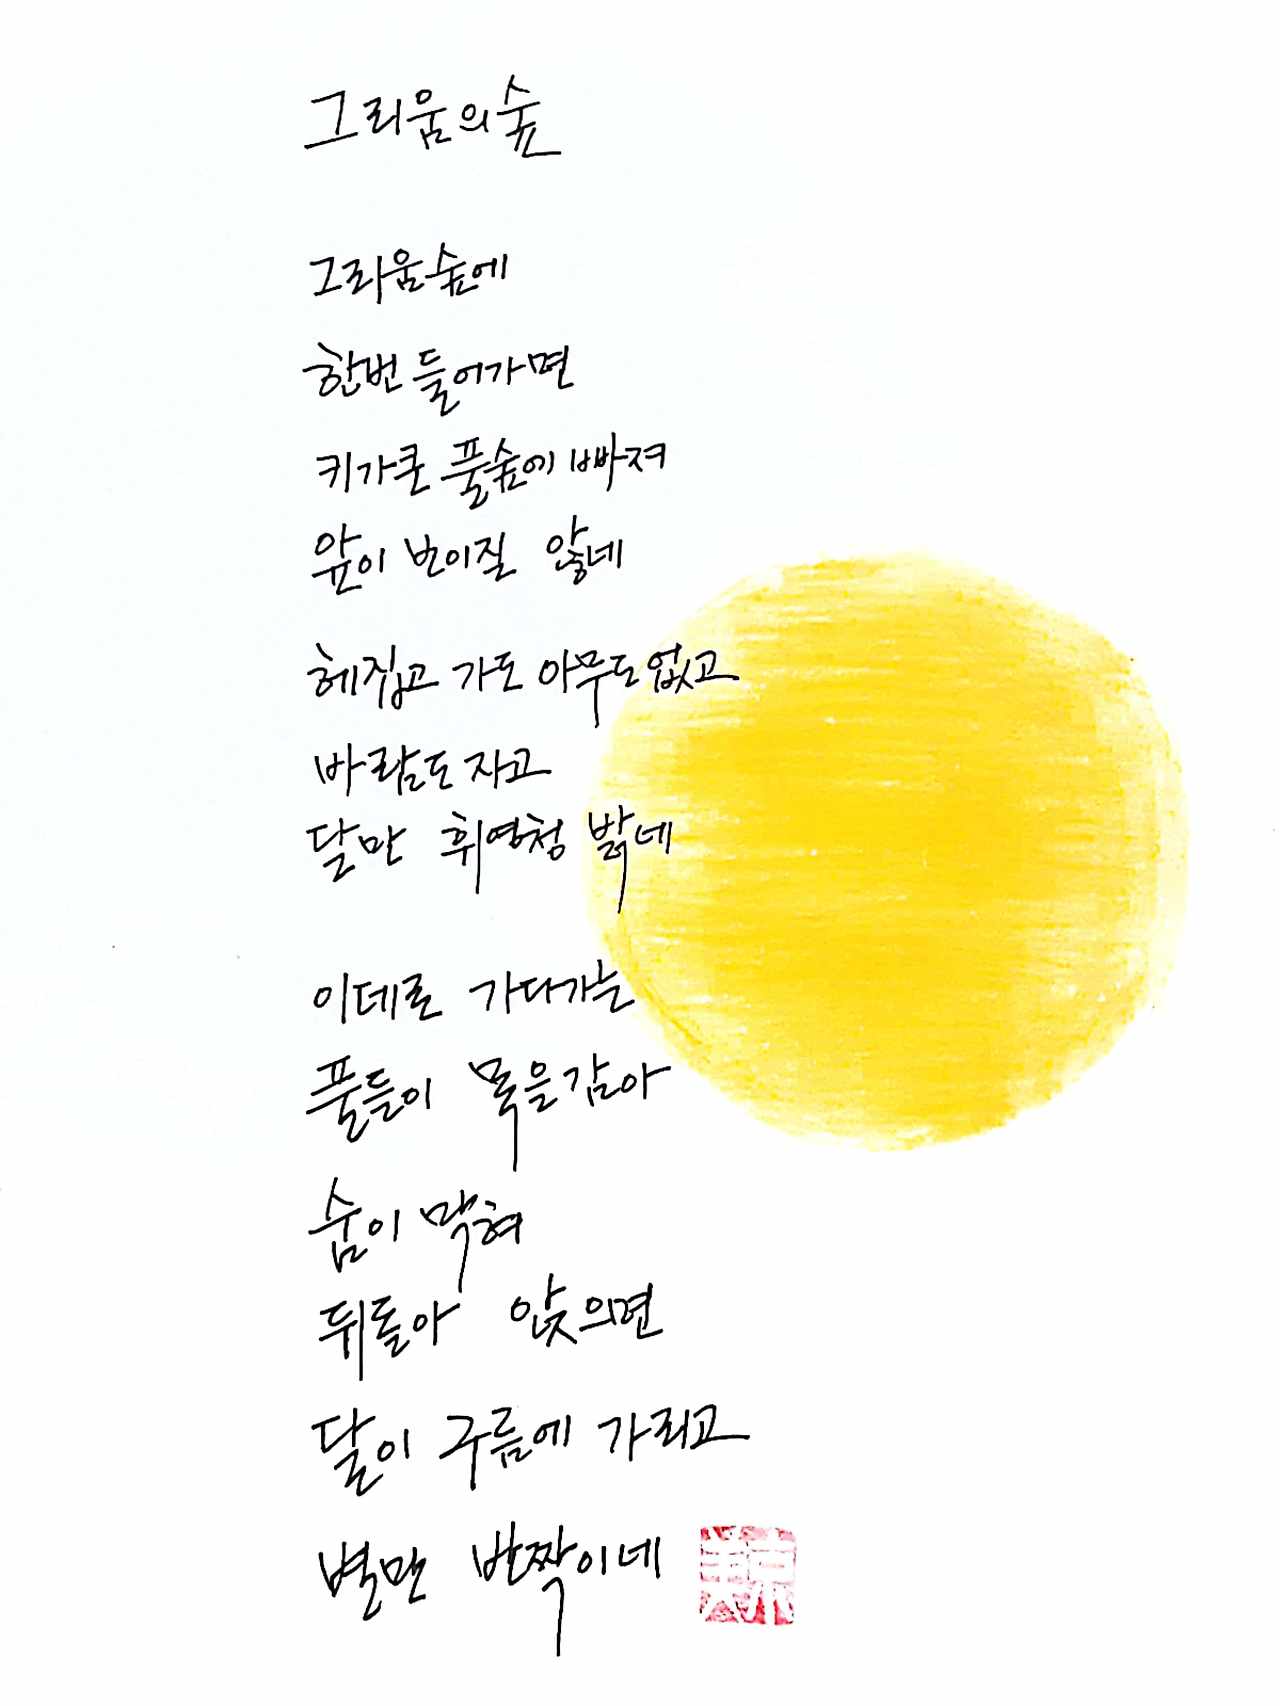 그리움의 숲
그리움 숲에
한번 들어가면
키가큰 풀숲에 빠져
앞이 보이질 않네
헤집고 가도 아무도 없고
바람도 자고
달만 휘영청 밝네
이데로 가다가는
풀들이 목을 감아
숨이 막혀
뒤돌아 앉으면
달이 구름에 가리고
별만 반짝이네